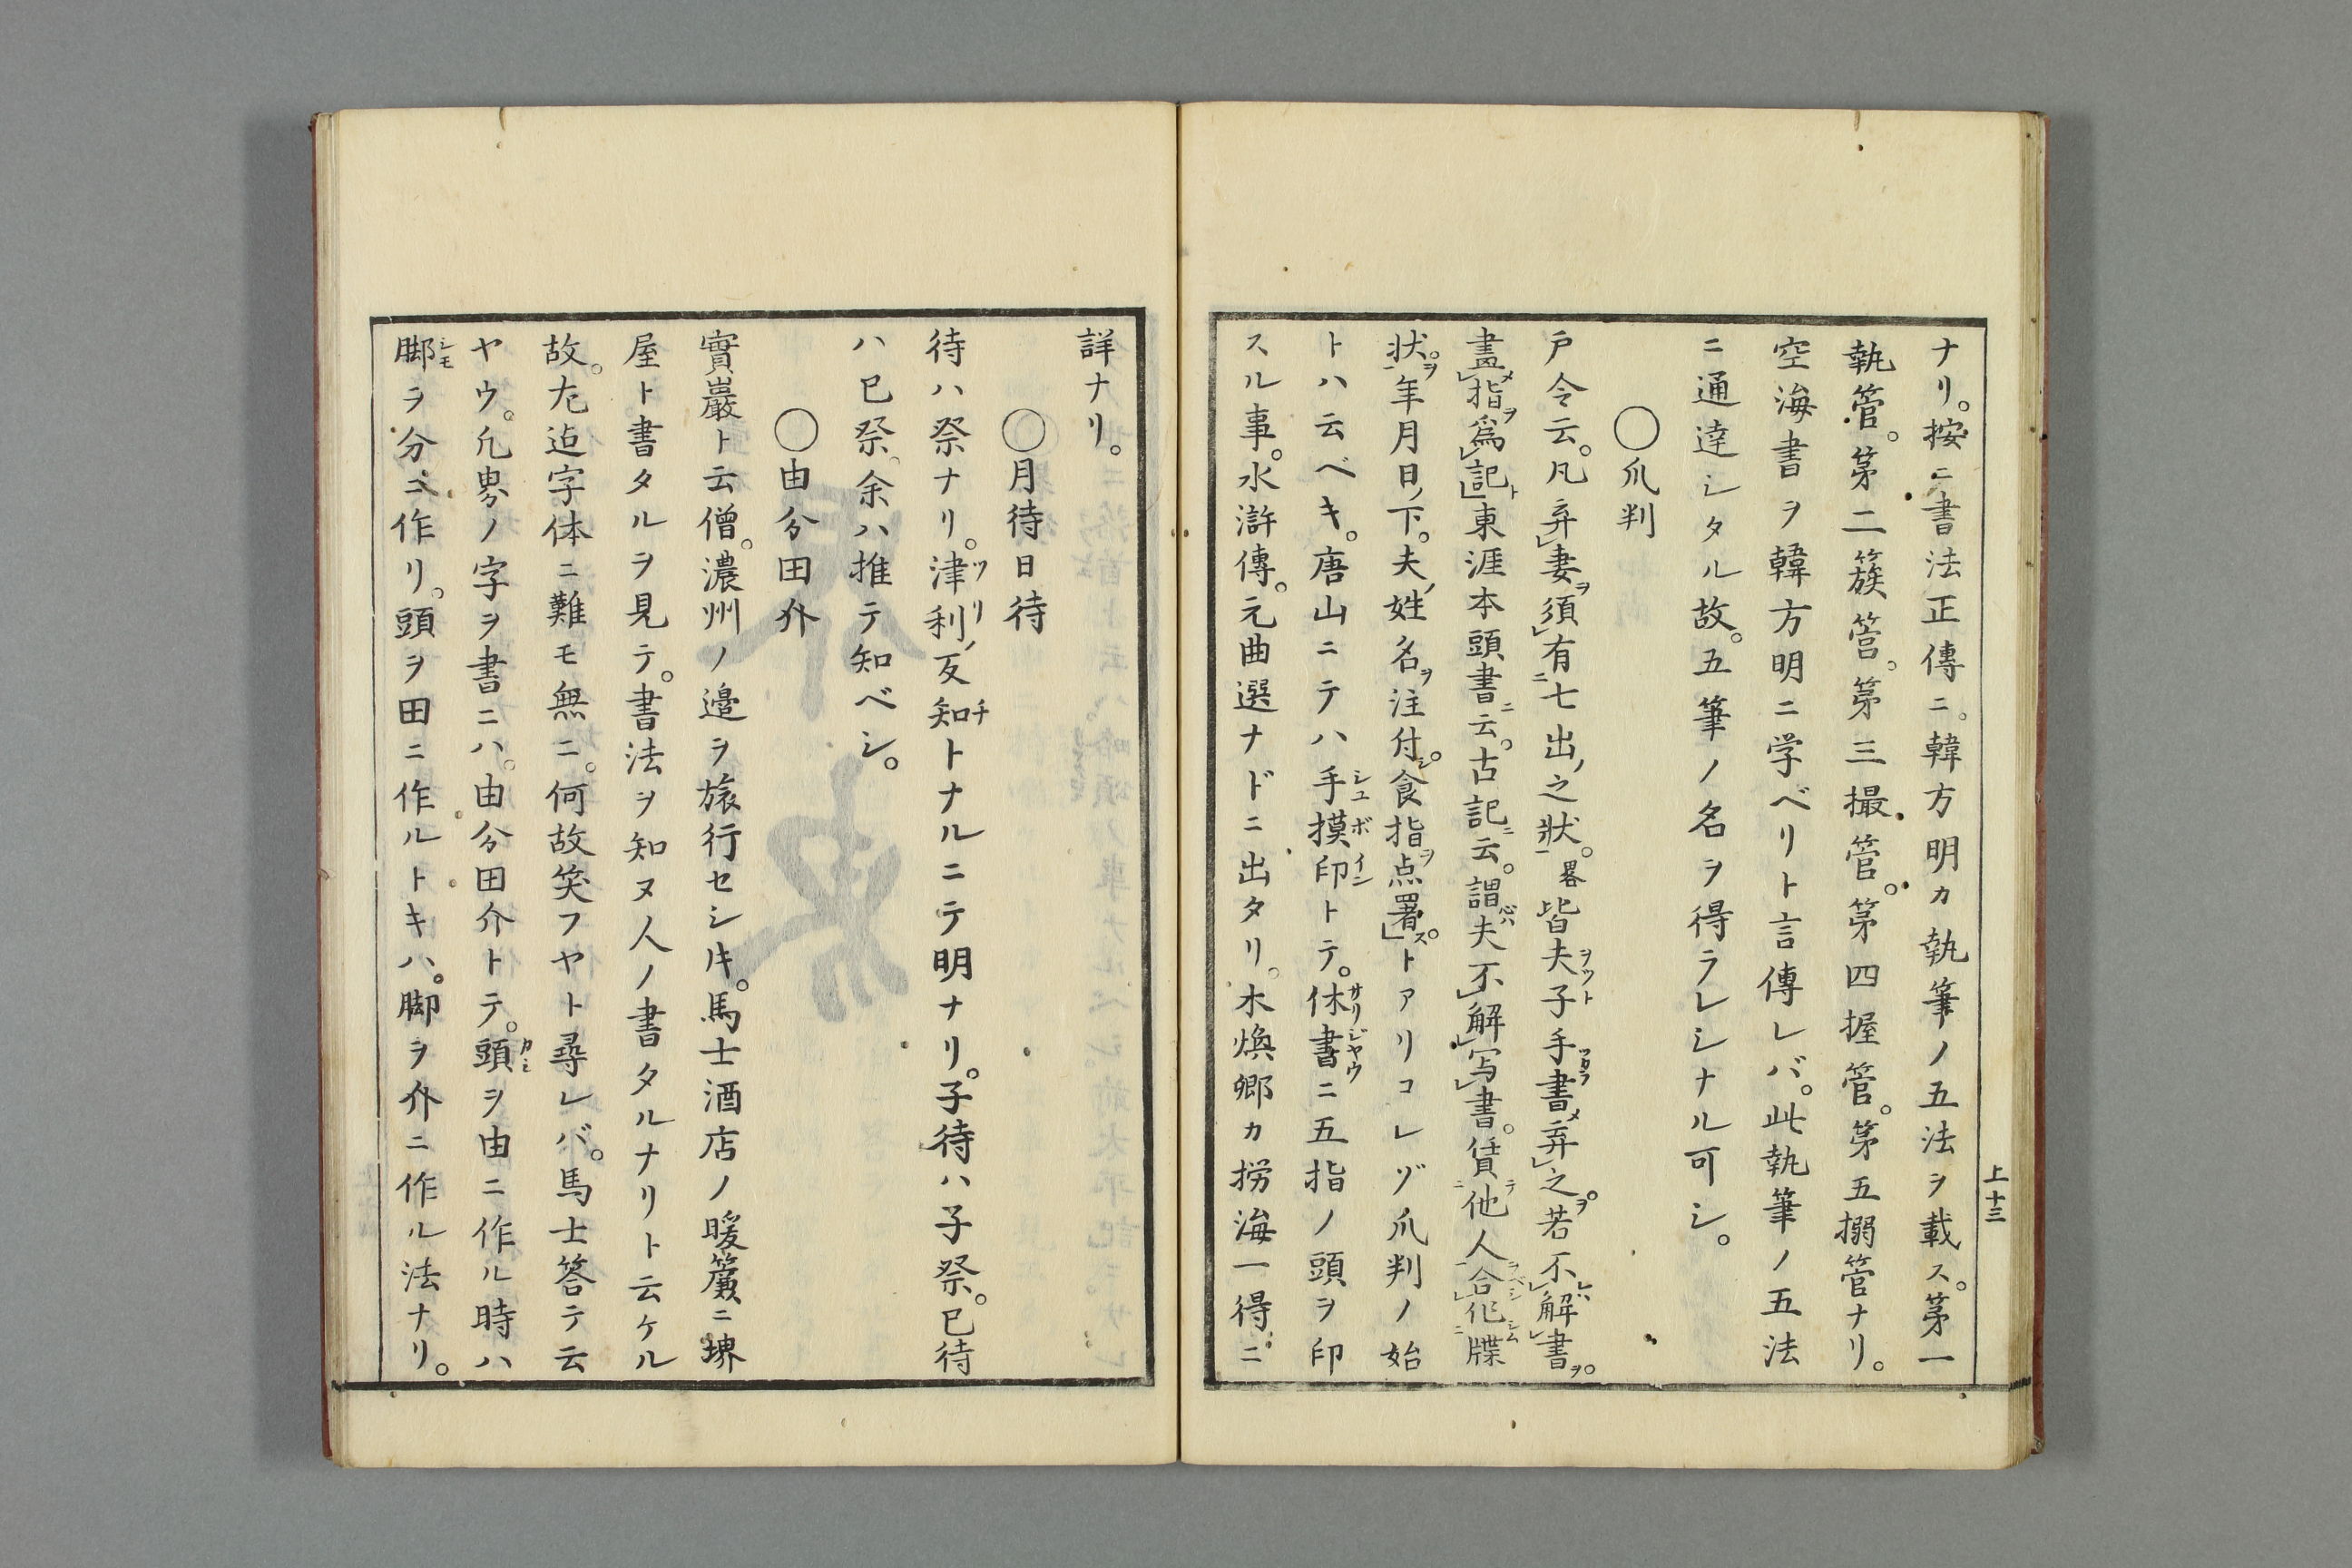 ナリ。按ニ書法正傳ニ。韓方明カ執筆ノ五法ヲ載ス。第一
執管。第二簇管。第三撮管。第四握管。第五搦管ナリ。
空海書ヲ韓方明ニ学ベリト言傳レバ。此執筆ノ五法
ニ通達シタル故。五筆ノ名ヲ得ラレシナル可シ。
〇爪判
戸令云。凡弃妻須有七出之狀。畧皆夫子手書弃之。若不解書。
畫指爲記東涯本頭書云。古記云。謂夫不解写書。賃他人合作牒
状。年月日下。夫姓名注付。食指点署。トアリコレヅ爪判ノ始
トハ云ベキ。唐山ニテハ手摸印トテ。休書ニ五指ノ頭ヲ印
スル事。水滸傳。元曲選ナドニ出タリ。木煥卿カ撈海一得ニ
上十三
詳ナリ。
〇月待日待
待ハ祭ナリ。津利ノ反知トナルニテ明ナリ。子待ハ子祭。巳待
ハ巳祭。余ハ推テ知ベシ。
〇由分田介
實巖ト云僧。濃州ノ邉ヲ旅行セシ𪜈。馬士酒店ノ暖簾ニ堺
屋ト書タルヲ見テ。書法ヲ知ヌ人ノ書タルナリト云ケル
故。左迠字体ニ難モ無ニ。何故笑フヤト尋レバ。馬士答テ云
ヤウ。凢畧ノ字ヲ書ニハ。由分田介トテ。頭ヲ由ニ作ル時ハ
脚ヲ分ニ作リ。頭ヲ田ニ作ルトキハ。脚ヲ介ニ作ル法ナリ。